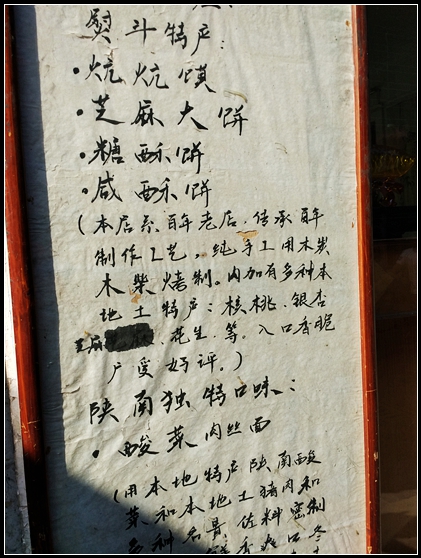 熨斗特产:
·炕炕馍
·芝麻大饼
·糖酥饼
·咸酥饼
(本店系百年老店.传承百年
制作工艺,纯手工用木炭
木柴烤制。内加有多种本
地土特产:核桃.银杏
芝麻 .花生.等。入口香脆
广受好评。)
陕南独特口味:
·酸菜肉丝面
(用本地特产陕南酸
菜和本地土猪肉和
多种名贵佐料密制